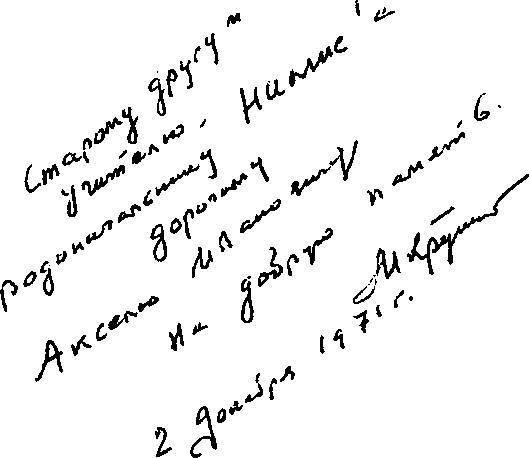 Старому другу и
учителю - Наилис'а
родоначальнику
дорогому
Акселю Ивановичу
на добрую память.
М Круп
2 декабря 1971 г.